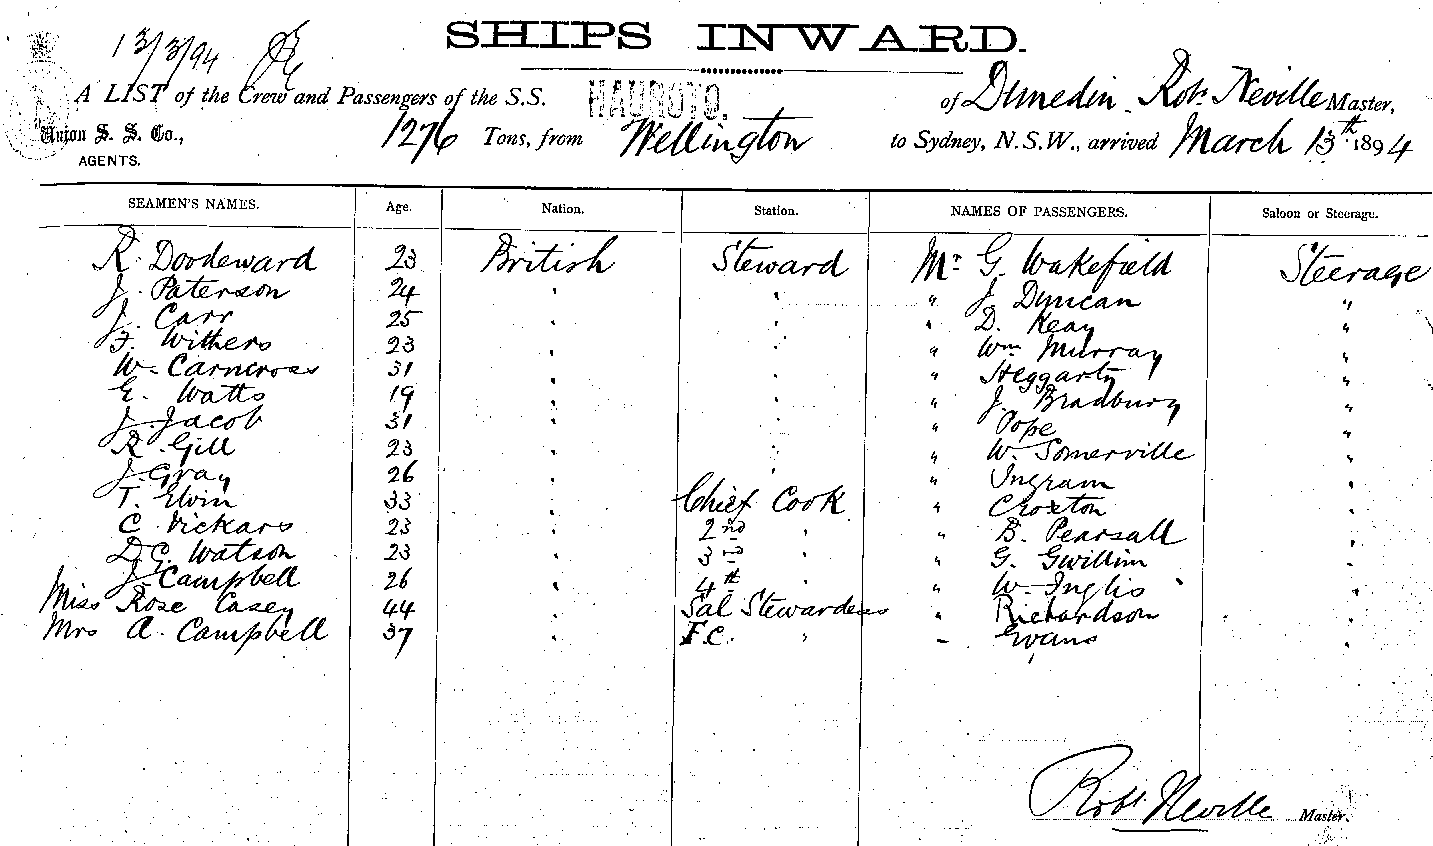 SHIPS INWARD.
13/3/94
A LIST of the Crew and Passengers of the S.S. HAUROTO. of Dunedin, Robt Neville Master,
Union S. S. Co., 1276 Tons, from Wellington to Sydney, N.S.W., arrived March 13th 1894
AGENTS.
SEAMEN'S NAMES. Age. Nation. Station. NAMES OF PASSENGERS. Saloon or Steerage.
R. Doodeward 23 British Steward Mr. G. Wakefield Steerage
J. Paterson 24 " " " J. Duncan "
J. Carr 25 " " " D. Keay "
F. Withers 23 " " " Wm Murray "
W. Carncross 31 " " " Heggarty "
E. Watts 19 " " " J. Bradbury "
J. Jacob 31 " " " Pope "
R. Gill 23 " " " W. Somerville "
J. Gray 26 " " " Ingram "
T. Elvin 33 " Chief Cook " Croxton "
C. Vickars 23 " 2nd " " B. Pearsall "
D.C. Watson 23 " 3rd " " G. Gwillim "
J. Campbell 26 " 4th " " W. Inglis "
Miss Rose Casey 44 " Sal Stewardess " Richardson "
Mrs A. Campbell 37 " F.C. " " Evans "
Robt Neville Master.